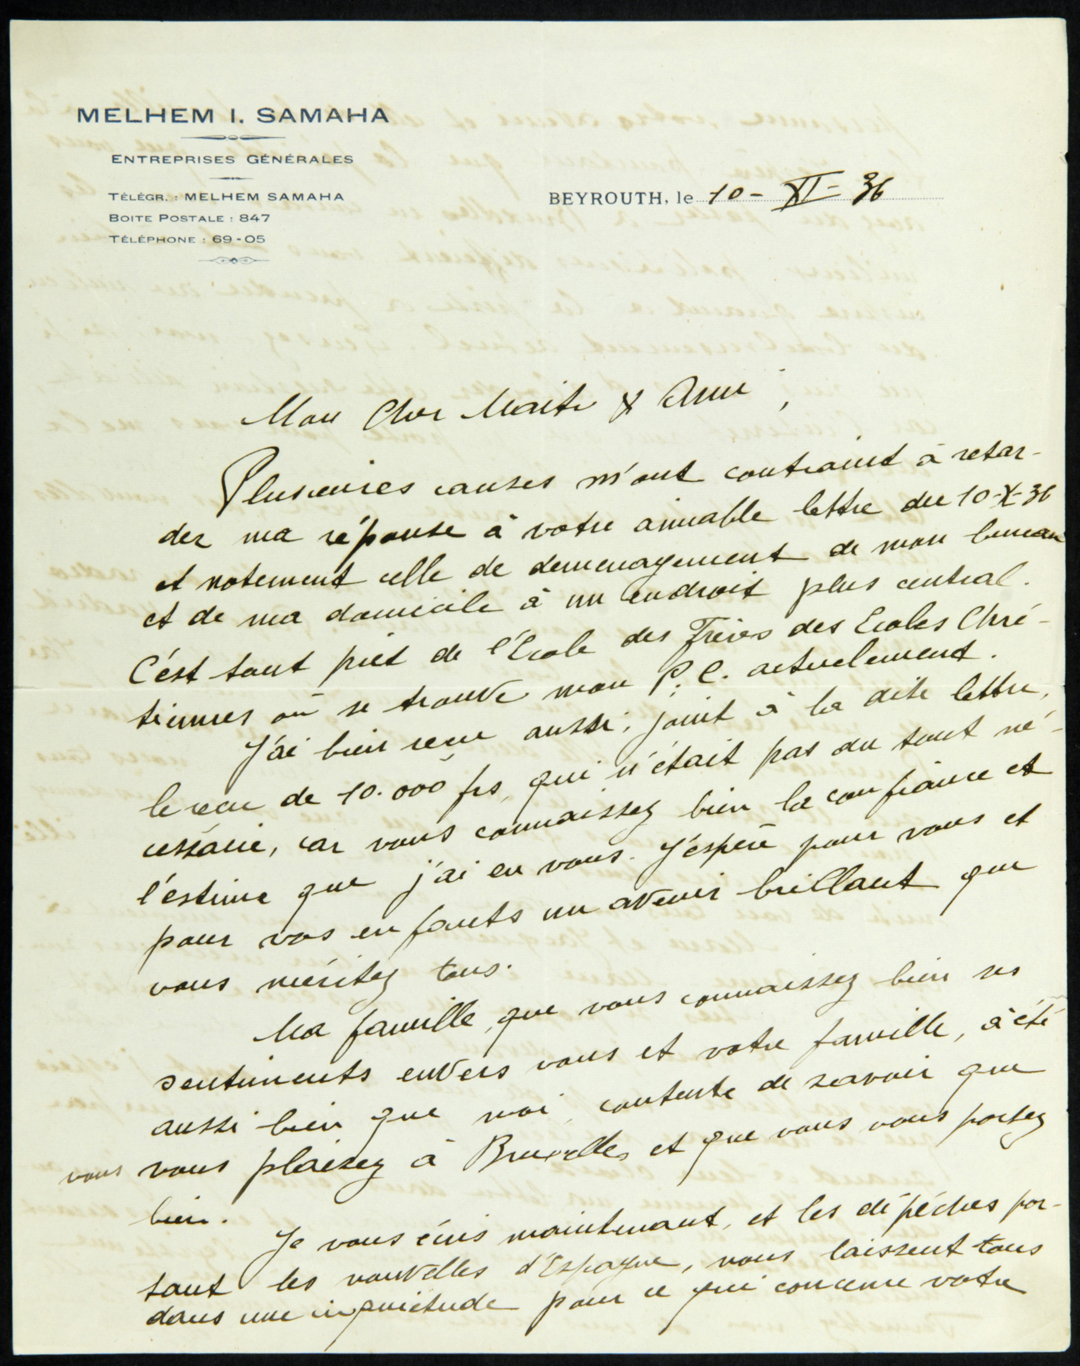 MELHEM I. SAMAHA
ENTREPRISES GÉNÉRALES
TÉLÉGR. : MELHEM SAMAHA
BOITE POSTALE : 847
TÉLÉPHONE : 69-05
BEYROUTH, le 10 - XI - 36
Mon Cher Maitre & Ami,
Plusieures causes m'ont contraint à retar-
der ma réponse à votre aimable lettre du 10-X-36
et notement celle de demenagement de mon bureau
et de ma domicile à un endroit plus central.
C'est tout prêt de l'École des Frères des Ecoles Chré-
tiennes où se trouve mon P.C. actuelement.
J'ai bien reçu aussi, joint à la dite lettre,
le reçu de 10.000 frs, qui n'était pas du tout né-
céssaire, car vous connaissez bien la confiance et
l'estime que j'ai en vous. J'espère pour vous et
pour vos enfants un avenir brillant que
vous méritez tous.
Ma famille, que vous connaissez bien ses
sentiments envers vous et votre famille, à été
aussi bien que moi, contente de savoir que
vous vous plaisez à Bruxelles et que vous vous portez
bien.
Je vous écris maintenant, et les dépéches por-
tant les nouvelles d'Espagne, nous laissent tous
dans une inquiétude pour ce qui concerne votre